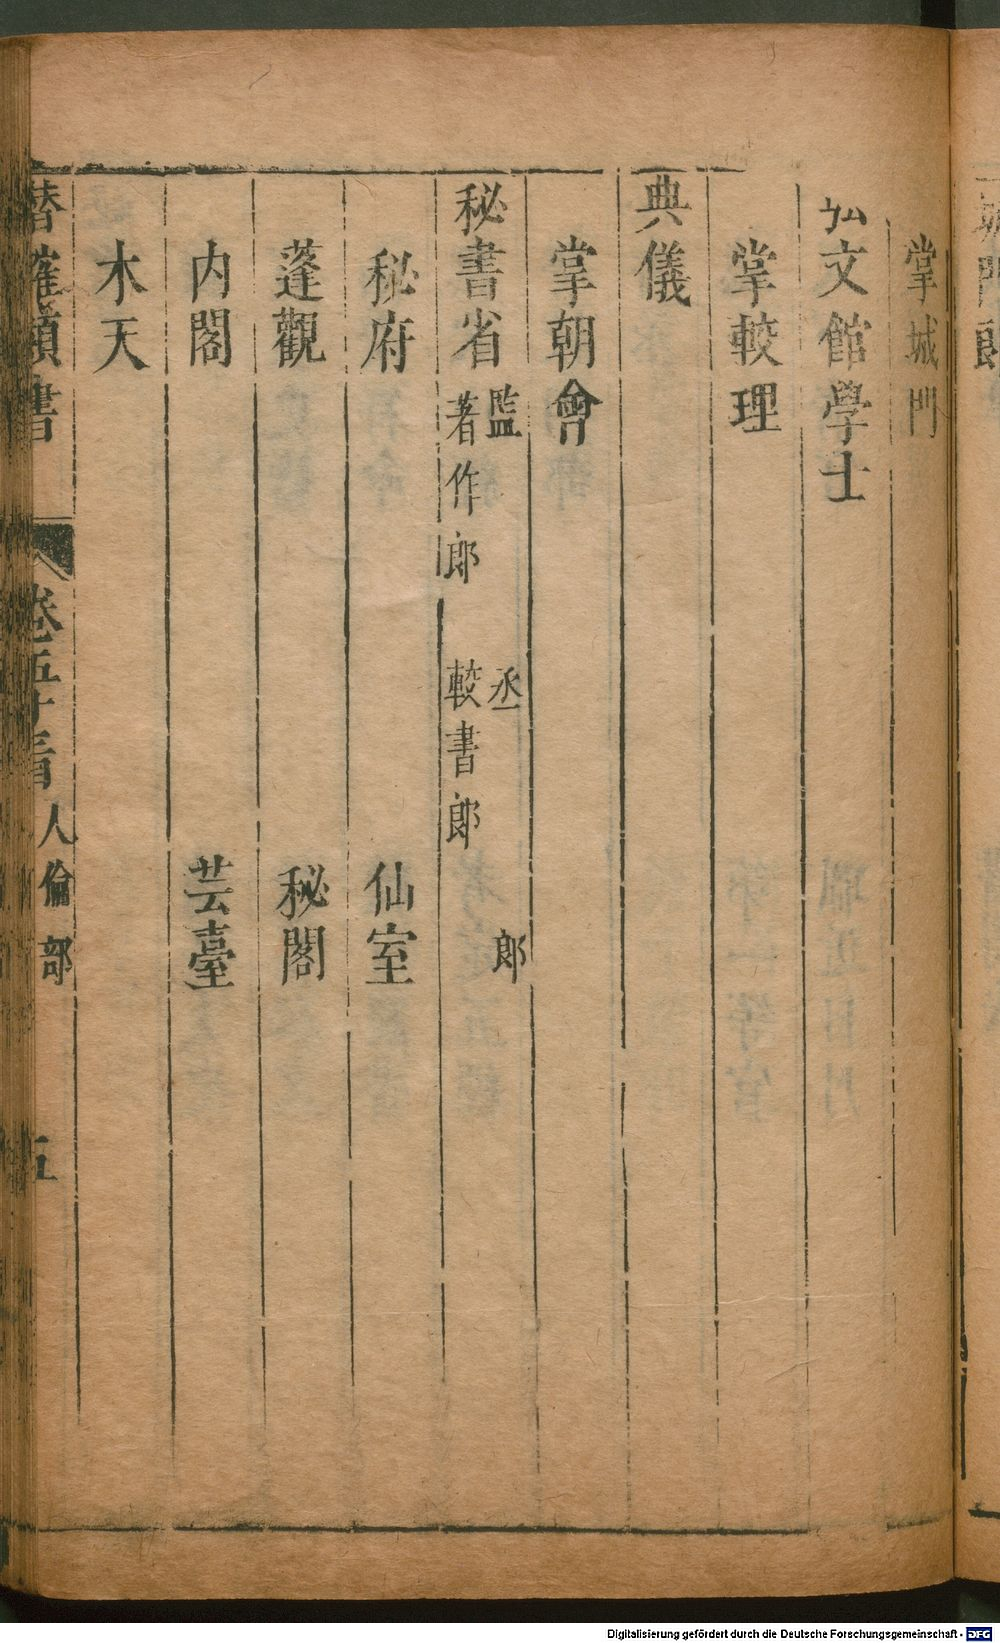 掌城門
弘文館學士
掌較理
典儀
掌朝會
秘書省 監 丞 郎 著作郎 較書郎
秘府 仙室
蓬觀 秘閣
内閣 芸臺
木天
卷五十 人倫部 五
Digitalisierung gefördert durch die Deutsche Forschungsgemeinschaft - DFG